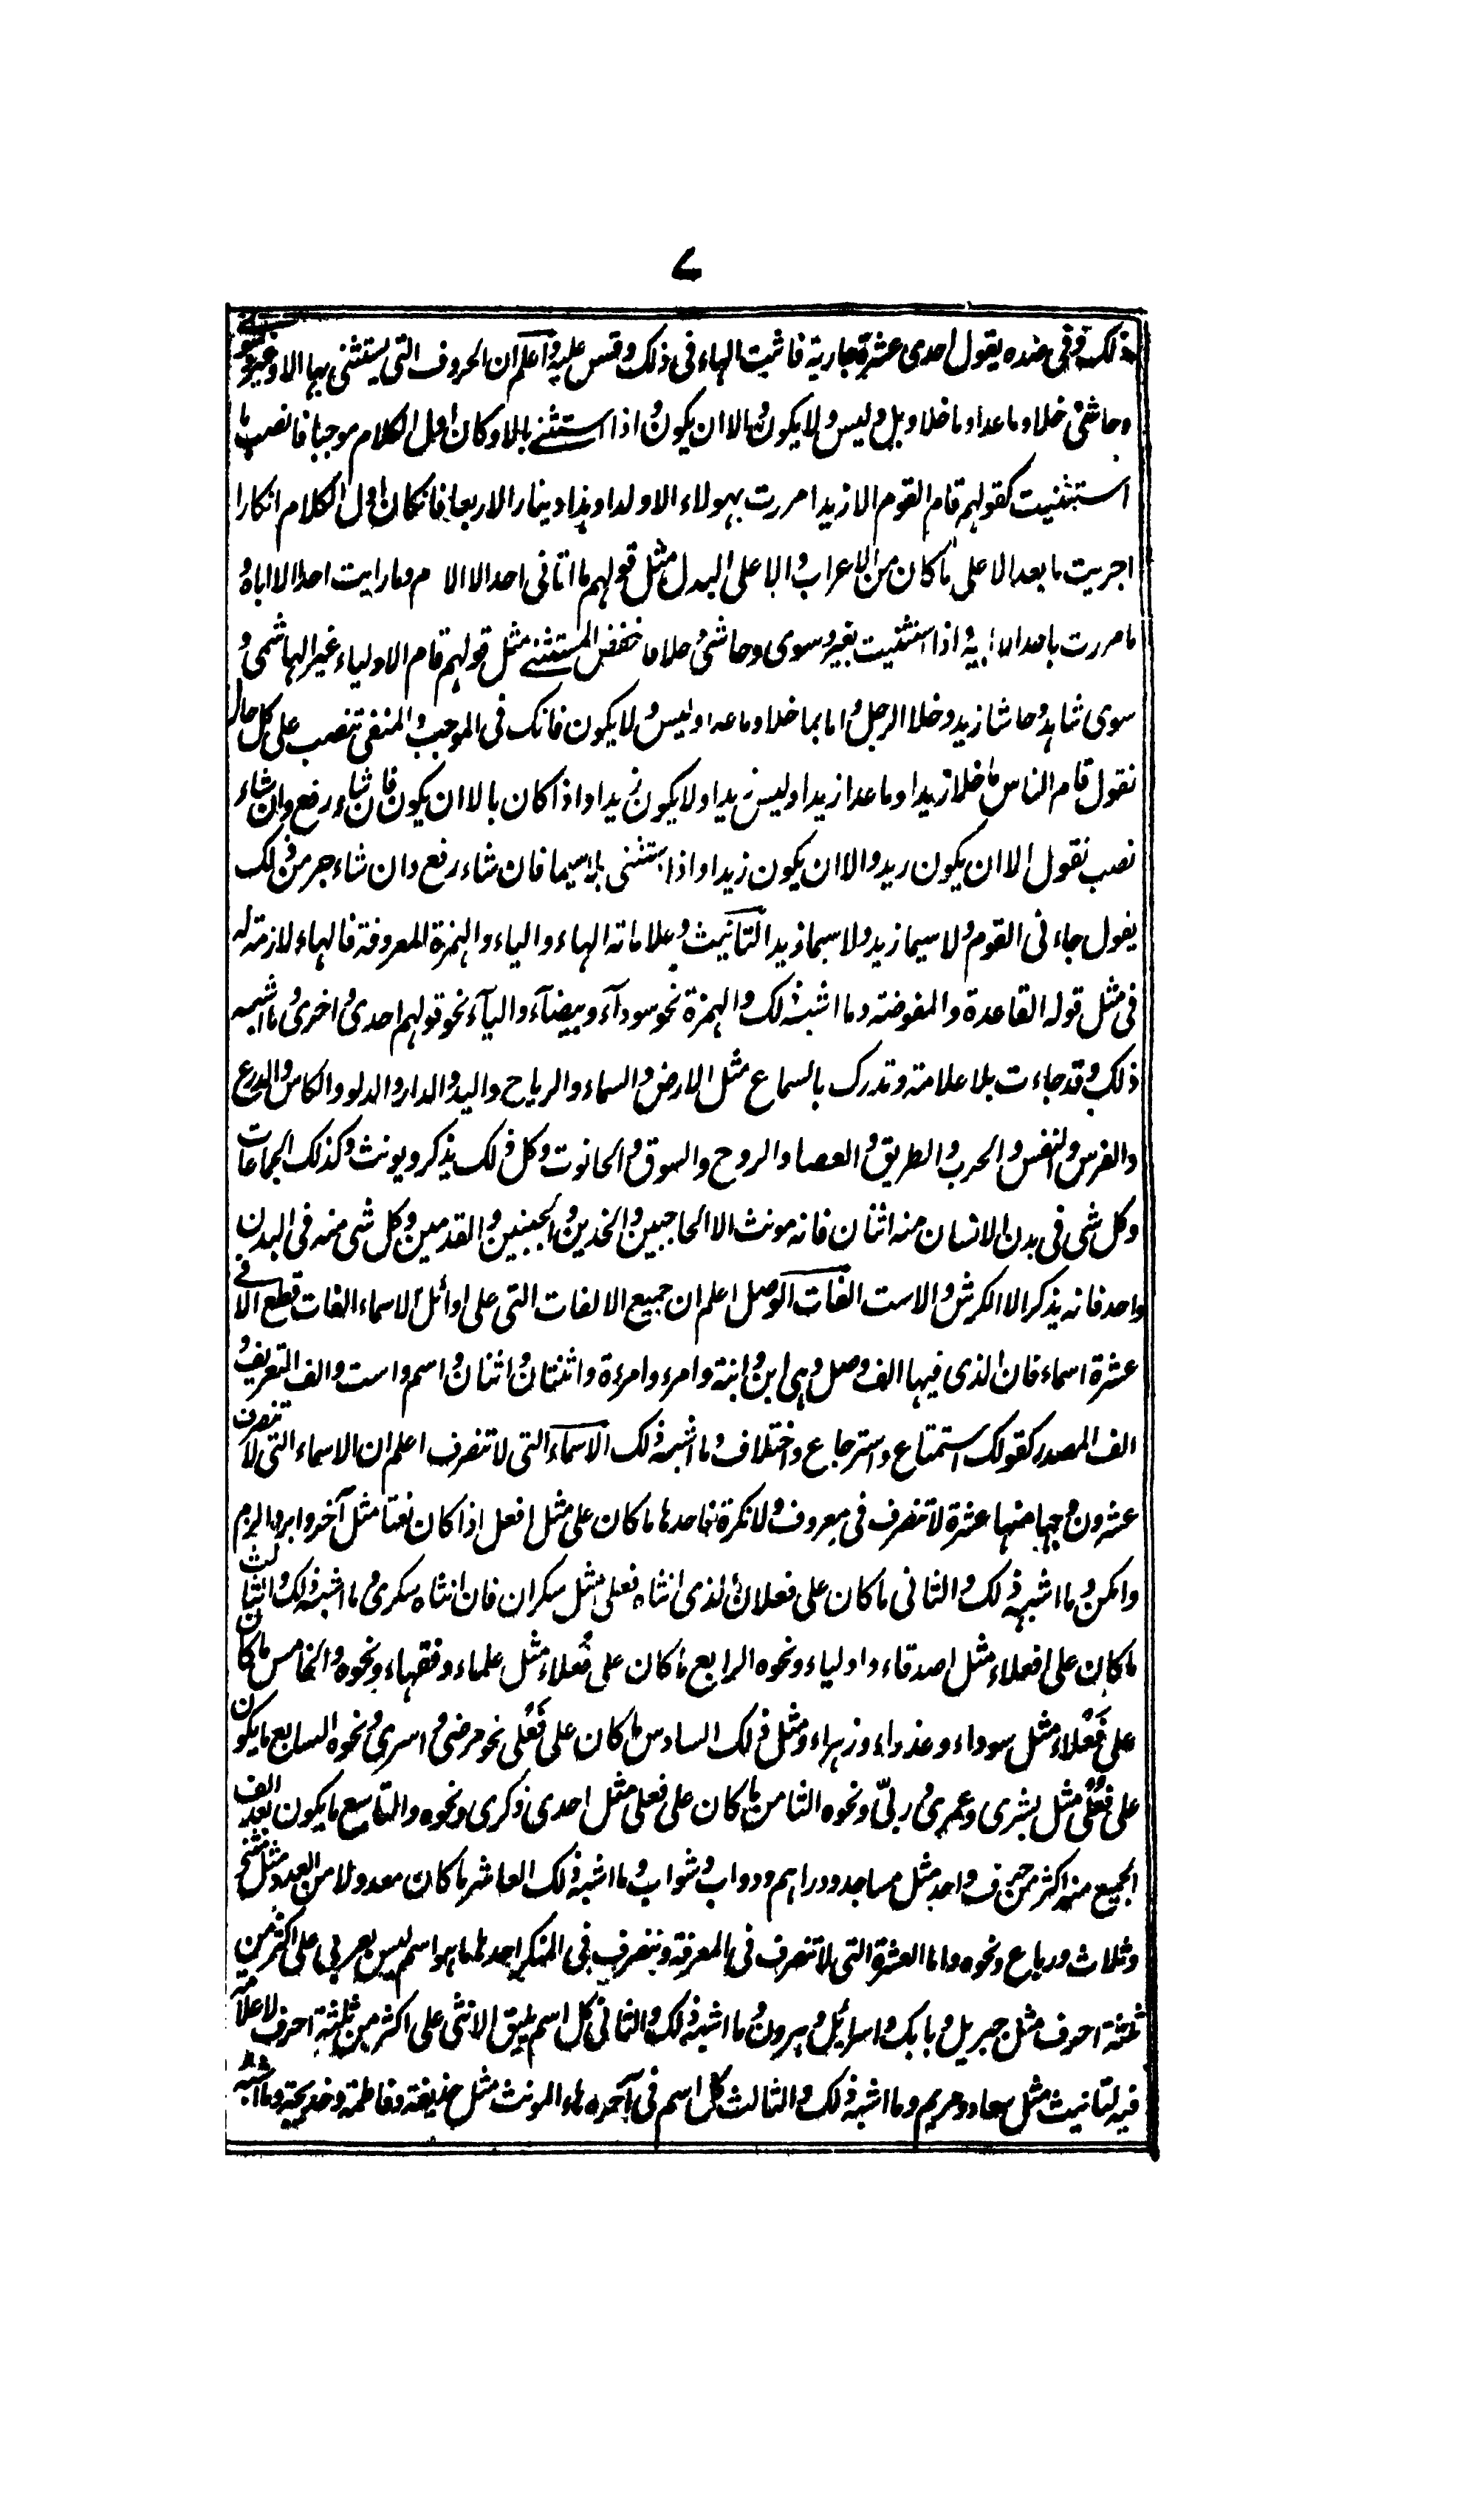 ۷
ذلک و فی ضده یقول احدی عشرة جاریة فاثبت الهاء فی ذلک و قس علیه و اعلم ان الحروف التی یستثنی بها الا و غیر و سوی
و حاشی و خلا و ما عدا و ما خلا و بل و لیس و لا یکون و الا ان یکون و اذا استثنے بالا و کان اول الکلام موجبا فانصب ما
استثنیت کقولهم قام القوم الا زیدا مررت بهولاء الا ولدا و هذا دینار الا ربعا فانکان اول الکلام انکارا
اجریت ما بعد الا علی ما کان من الاعراب و الا علی البدل مثل قولهم ما اتانی احد الا الا م و ما رایت احدا الا اباه و
ما مررت باحد الا ابیه و اذا استثنیت بغیر و سوی و حاشی و خلا فاخفض المستثنے مثل قولهم قام الاولیاء غیر الهاشمی و
سوی شاهد و حاشا زید و خلا الرجل و اما بما خلا و ما عدا و لیس و لا یکون فانک فی الموجب و المنفی تنصب علی کل حال
نقول قام الناس ما خلا زیدا و ما عدا زیدا و لیس زیدا و لا یکون زیدا و اذا کان بالا ان یکون فان شاء رفع و ان شاء
نصب نقول الا ان یکون زید و الا ان یکون زیدا و اذا استثنی بلا سیما فان شاء رفع و ان شاء جر من ذلک
یقول جاءنی القوم و لا سیما زید و لا سیما زیدا التانیث و علاماته الهاء و الیاء و الهمزة المعروفة فالهاء لازمة له
فی مثل قوله القاعدة و المفوضة و ما اشبه ذلک و الهمزة نحو سودآء و بیضآء و الیآء نحو قولهم احدی و اخری و ما اشبه
ذلک و قد جاءت بلا علامة و تدرک بالسماع مثل الارض و السماء و الریاح و الید و الدار و الدلو و الکاس و الدرع
و الفرس و النفس و الحرب و الطریق و العصا و الروح و السوق و الحانوت و کل ذلک یذکر و یونث و کذلک الجماعات
و کل شی فی بدن الانسان منه اثنان فانه مونث الا الحاجبین و الخدین و الجبینین و القدمین و کل شی منه فی البدن
واحد فانه یذکر الا الکرش و الاست الفات الوصل اعلم ان جمیع الالفات التی علی اوائل الاسماء الفات قطع الا فے
عشرة اسماء فان الذی فیها الف وصل و هی ابن و ابنة و امرء و امرءة و اثنتان و اثنان و اسم و است و الف التعریف و
الف المصدر کقولک استمتاع و استرجاع و اختلاف و ما اشبه ذلک الاسماء التی لا تنصرف اعلم ان الاسماء التی لا تنصرف
عشرون وجها منها عشرة لا تنصرف فی معروف و لا نکرة فاحدها ما کان علی مثل افعل اذا کان نعتا مثل آخر و ابرد الزم
و امکن و ما اشبه ذلک و الثانی ما کان علی فعلان الذی انثاه فعلی مثل سکران فان انثاه سکری و ما اشبه ذلک و الثالث
ما کان علی افعلاء مثل اصدقاء و اولیاء و نحوه الرابع ما کان علی فُعلاء مثل علماء و فقهاء و نحوه و الخامس ما کان
علی فَعْلاء مثل سوداء و عذراء و زهراء و مثل ذلک السادس ما کان علی فَعْلی نحو مرضی و اسری و نحوه السابع ما یکون
علی فُعْلی مثل بشری و عمری و ربّی و نحوه الثامن ما کان علی فعلی مثل احدی و ذکری و نحوه و التاسع ما یکون بعد الف
الجمیع منه اکثر من حرف واحد مثل مساجد و دراهم و دواب و شواب و ما اشبه ذلک العاشر ما کان معدولا من العدد مثل مثنے
و ثلاث و رباع و نحوه و اما العشرة التی لا تنصرف فی المعرفة و تنصرف فی المنکر احدها ما هو اسم لیس بعربی علی اکثر من
ثلثة احرف مثل جبریل و بابک و اسرائیل و هرون و ما اشبه ذلک و الثانی کل اسم یلیق الانثی علی اکثر من ثلثة احرف لا علامة
فیه لتانیث مثل سعاد و مریم و ما اشبه ذلک و الثالث کل اسم فی آخره هاء المونث مثل حذیفة و فاطمة و خدیجة و ما اشبه